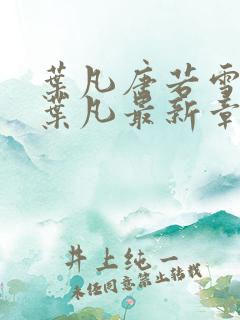 葉凡唐若雪
葉凡最新章
井上纯一
未经同意禁止转载